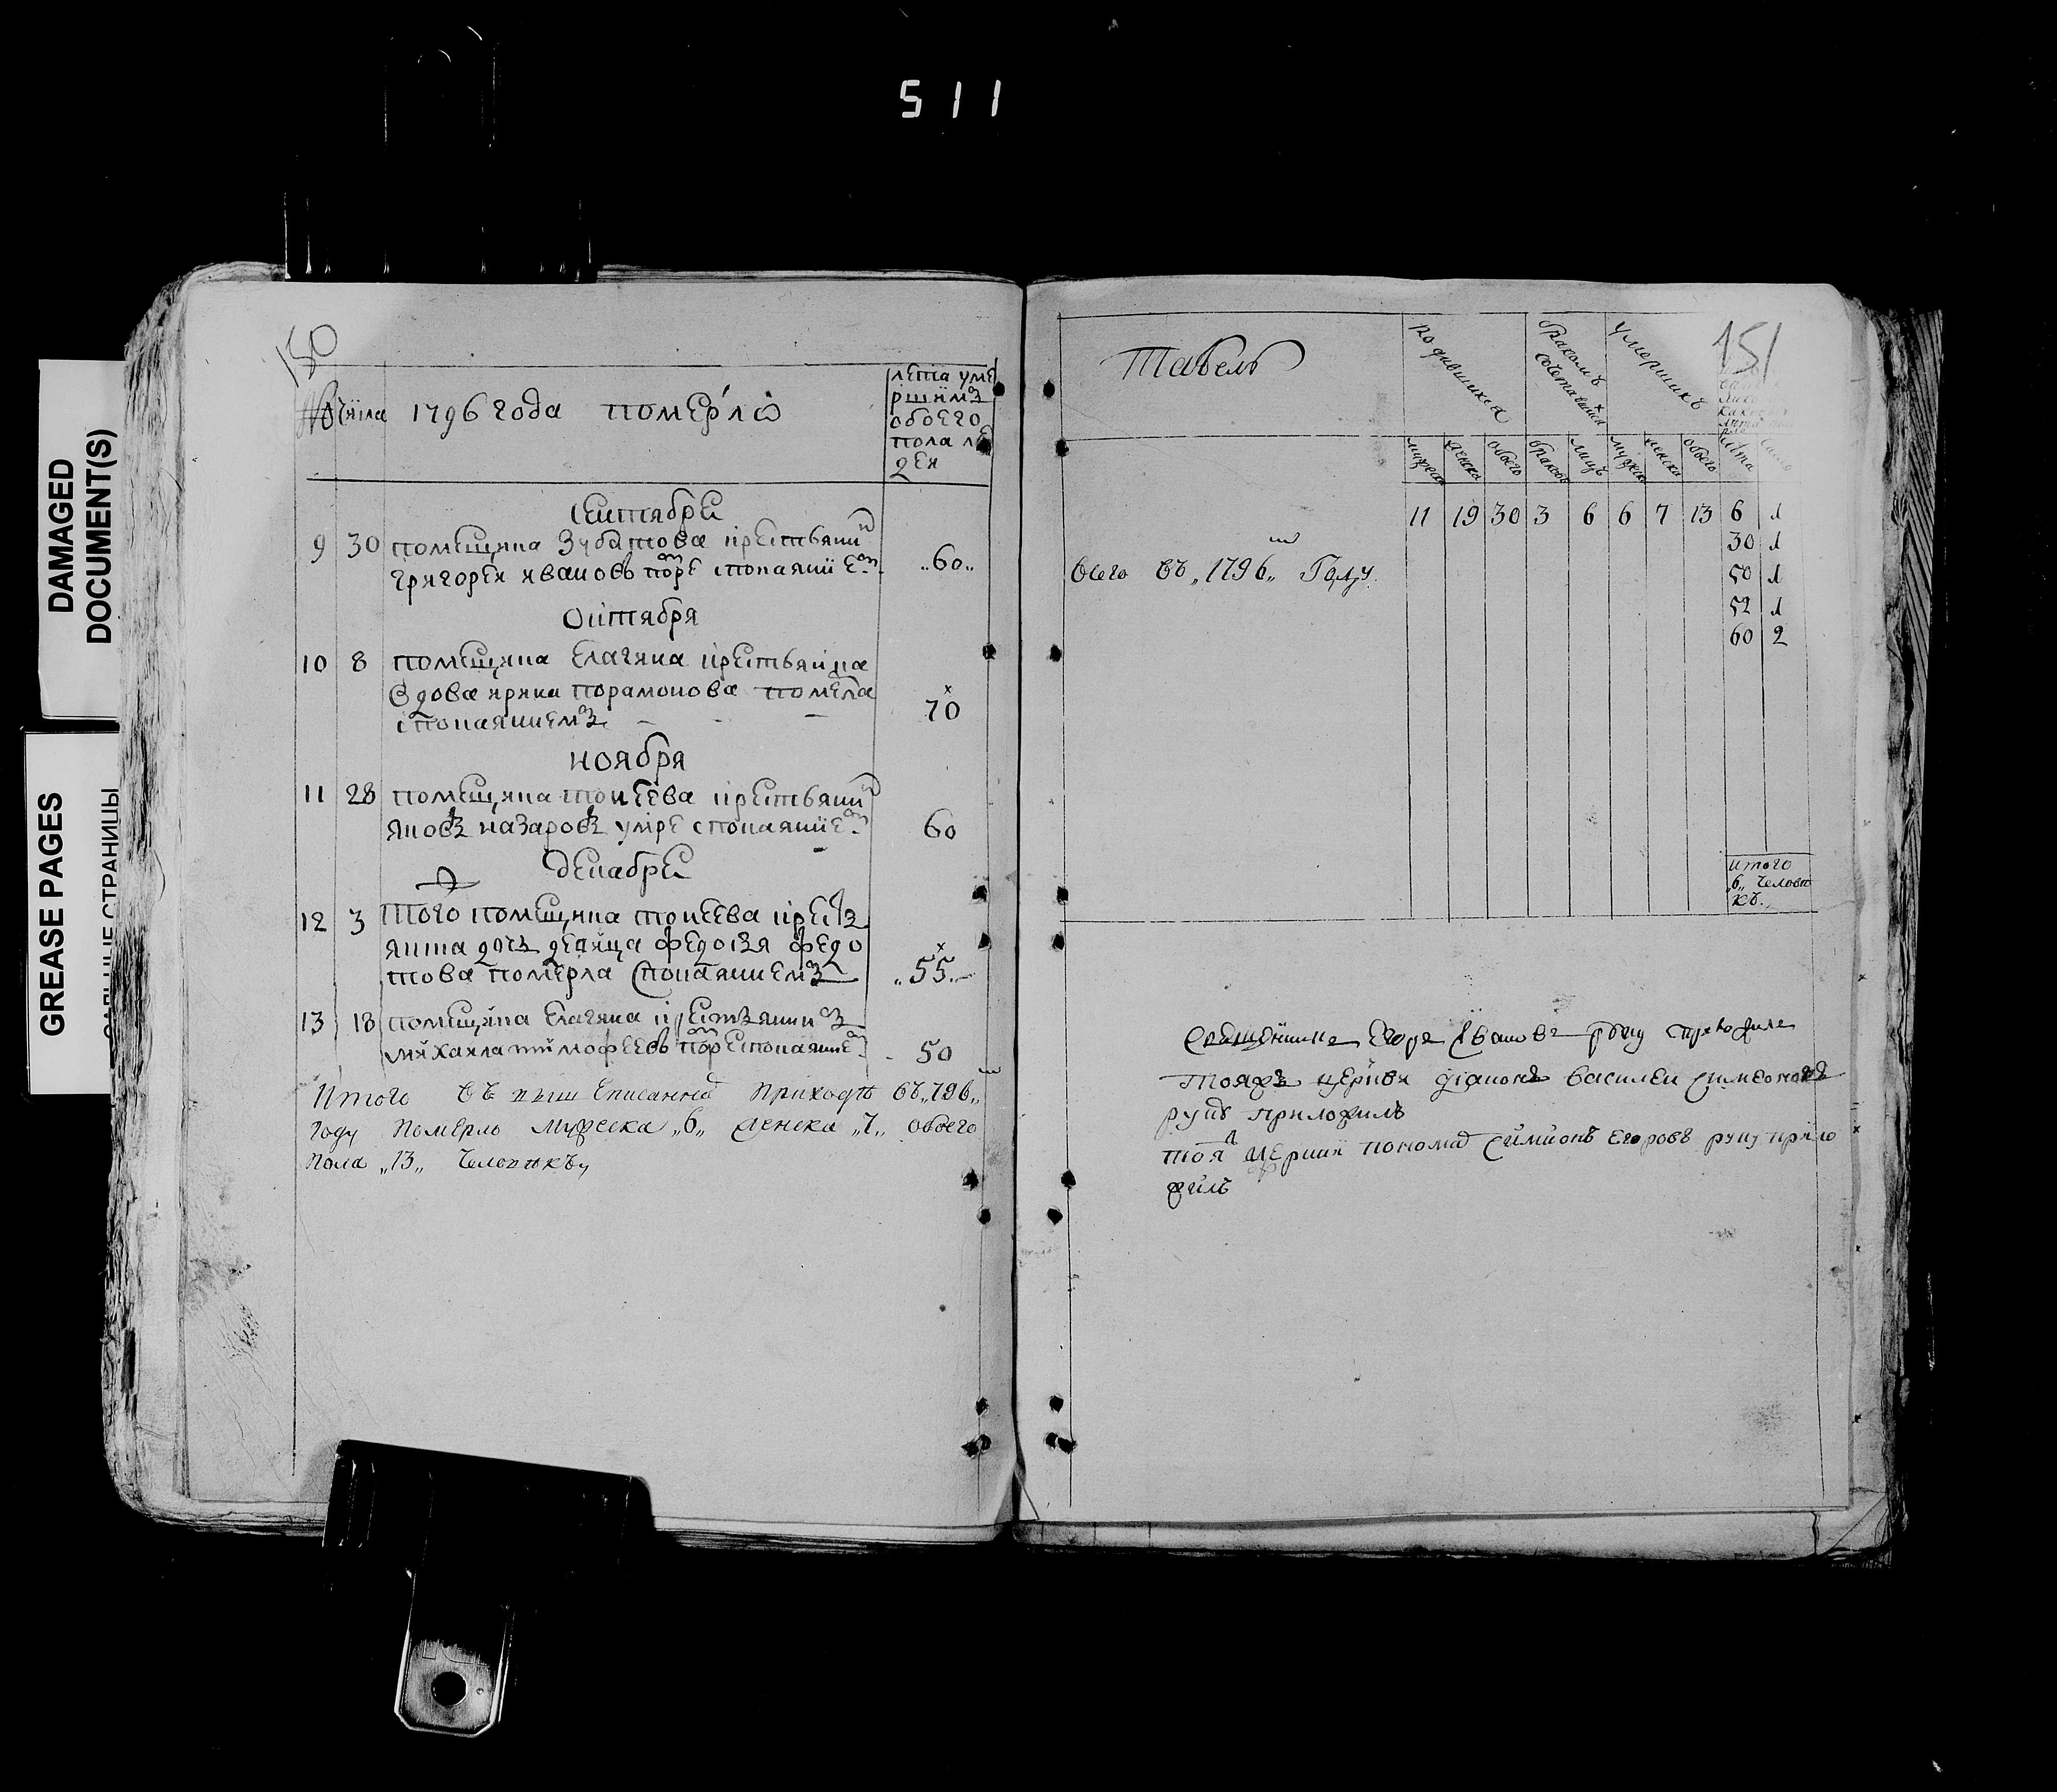 511
DAMAGED
DOCUMENT(S)
GREASE PAGES
СТРАНИЦЫ
150
№ числа 1796 года померло
лета уме
ршимъ
обоего
пола лю
дей
Сентября
9 30 помещика Зубатова крестьянин
григорей иванов помре спокаянием „60„
Октября
10 8 помещика Елагина крестьянка
вдова ирина порамонова померла
спокаяниемъ 70
ноября
11 28 помещика крестьянин
яковъ назаровъ умре спокаянием 60
декабря
12 3 того помещика
дочь девица федосья федо
това померла спокаяниемъ „55„
13 18 помещика Елагина крестьянинъ
михаила тимофеевъ помре спокаянием 50
Итого въ вышеписанном приходѣ въ „796„м
году померло мужеска „6„ женска „7„ обоего
пола „13„ человѣкъ
151
Табель
родившихся
бракомъ
сочетавшихся
умершихъ
мужеска женска обоего браковъ лицъ мужеска женска обоего лета
11 19 30 3 6 6 7 13 6 1
30 1
Всего въ „1796„м Году.
50 1
52 1
60 2
итого
„6„ человѣ
къ.
Священникъ Егоръ Ивановъ руку приложилъ
тояжъ церкви диаконъ василеи симеоновъ
руку приложилъ
тояж церкви пономар симионъ Егоровъ руку прило
жилъ